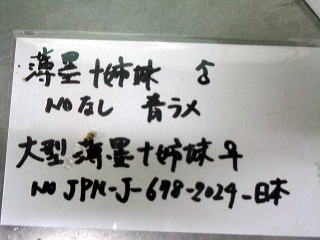 薄墨十姉妹 ♂
NOなし 青ラメ
大型薄墨十姉妹♀
NO JPN-J-698-2024-日本